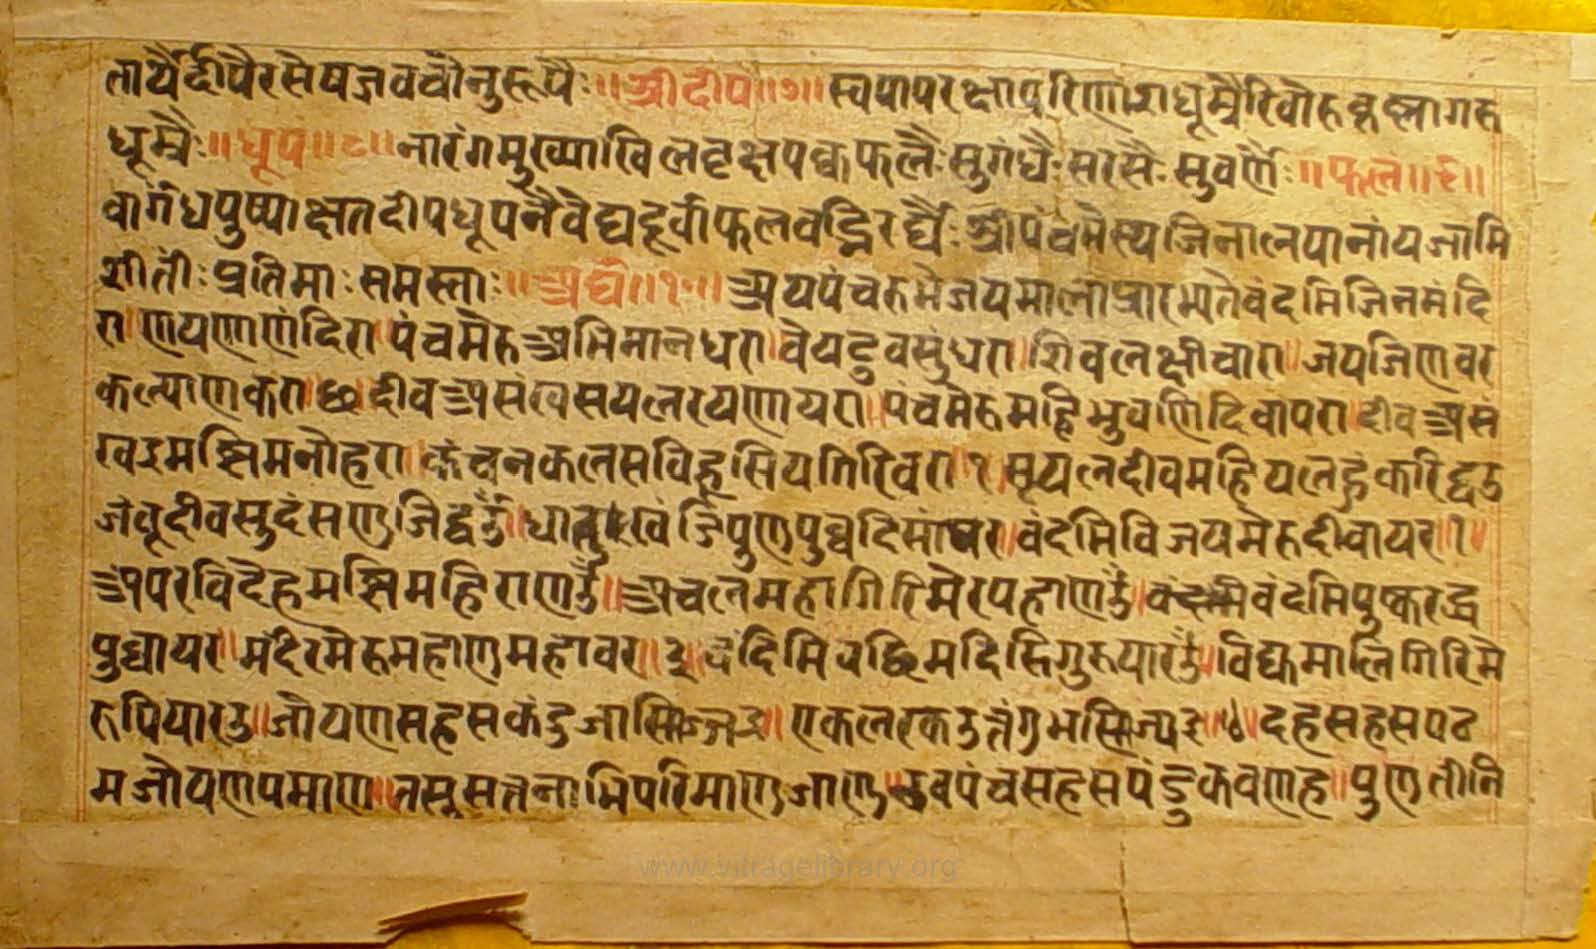 तार्थैर्दीपैरसेषजववौनुरूपैः॥श्रीदीप॥७॥स्वपापरक्षापरिणांशधूम्रैरिवोरुकृष्नागरु
धूम्रैः॥धूप॥८॥नारंगमुख्याखिलवृक्षपक्वफलैःसुगंधैःसरसैःसुवर्णैः॥फल॥९॥
वार्गंधपुष्पाक्षतदीपधूपनैवेद्यदूर्वाफलवद्भिरर्घैः॥श्रीपंचमेस्थजिनालयानांयजामि
शीतीःप्रतिमाःसमस्ताः॥अर्घं॥१०॥अथपंचरुमेजयमालाप्रारभ्यतेवंदमिजिनमंदि
रा॥णयणाणंदिरा॥पंचमेरुअभिमानधरा॥वेयद्दुवसुंधरा॥शिवलक्षीचारा॥जयजिणवर
कल्याणकरा॥छ॥दीवअसंखसयलरयणायरा॥पंचमेरुमहिभुवणिदिवापरा॥दीवअसं
खइमझिमनोहरा॥कंचनकलसविहसियगिरिवरा॥१॥सयलदीवमहियलहंकरिट्ठउ
जंवूदीवसुदंसणुजिट्ठउँ॥धातुखंजिपुणपुव्वदिसांवर॥वंदमिविजयमेरुदीवायर॥२॥
अपरविदेहमझिमहिराणउँ॥अचलमहागिरिमेरपहाणउँ॥वंदमिपुष्करद्ध
पुव्वायर॥मंदिरमेरुमहाणमहावर॥३॥वंदिमिपछिमदिसिगुरुयारउँ॥विद्यमालिगिरिमे
रुपियारउ॥जोयणसहसकंडुजासिज्जइ॥एकलरकउत्तंगुभासिज्यइ॥४॥दहसहसपढ
मजोयणपमाण॥तसुसतनाभिपरिमाणजाण॥हुवपंचसहसपंडुकवणह॥पुणतीनि
www.vitragelibrary.org